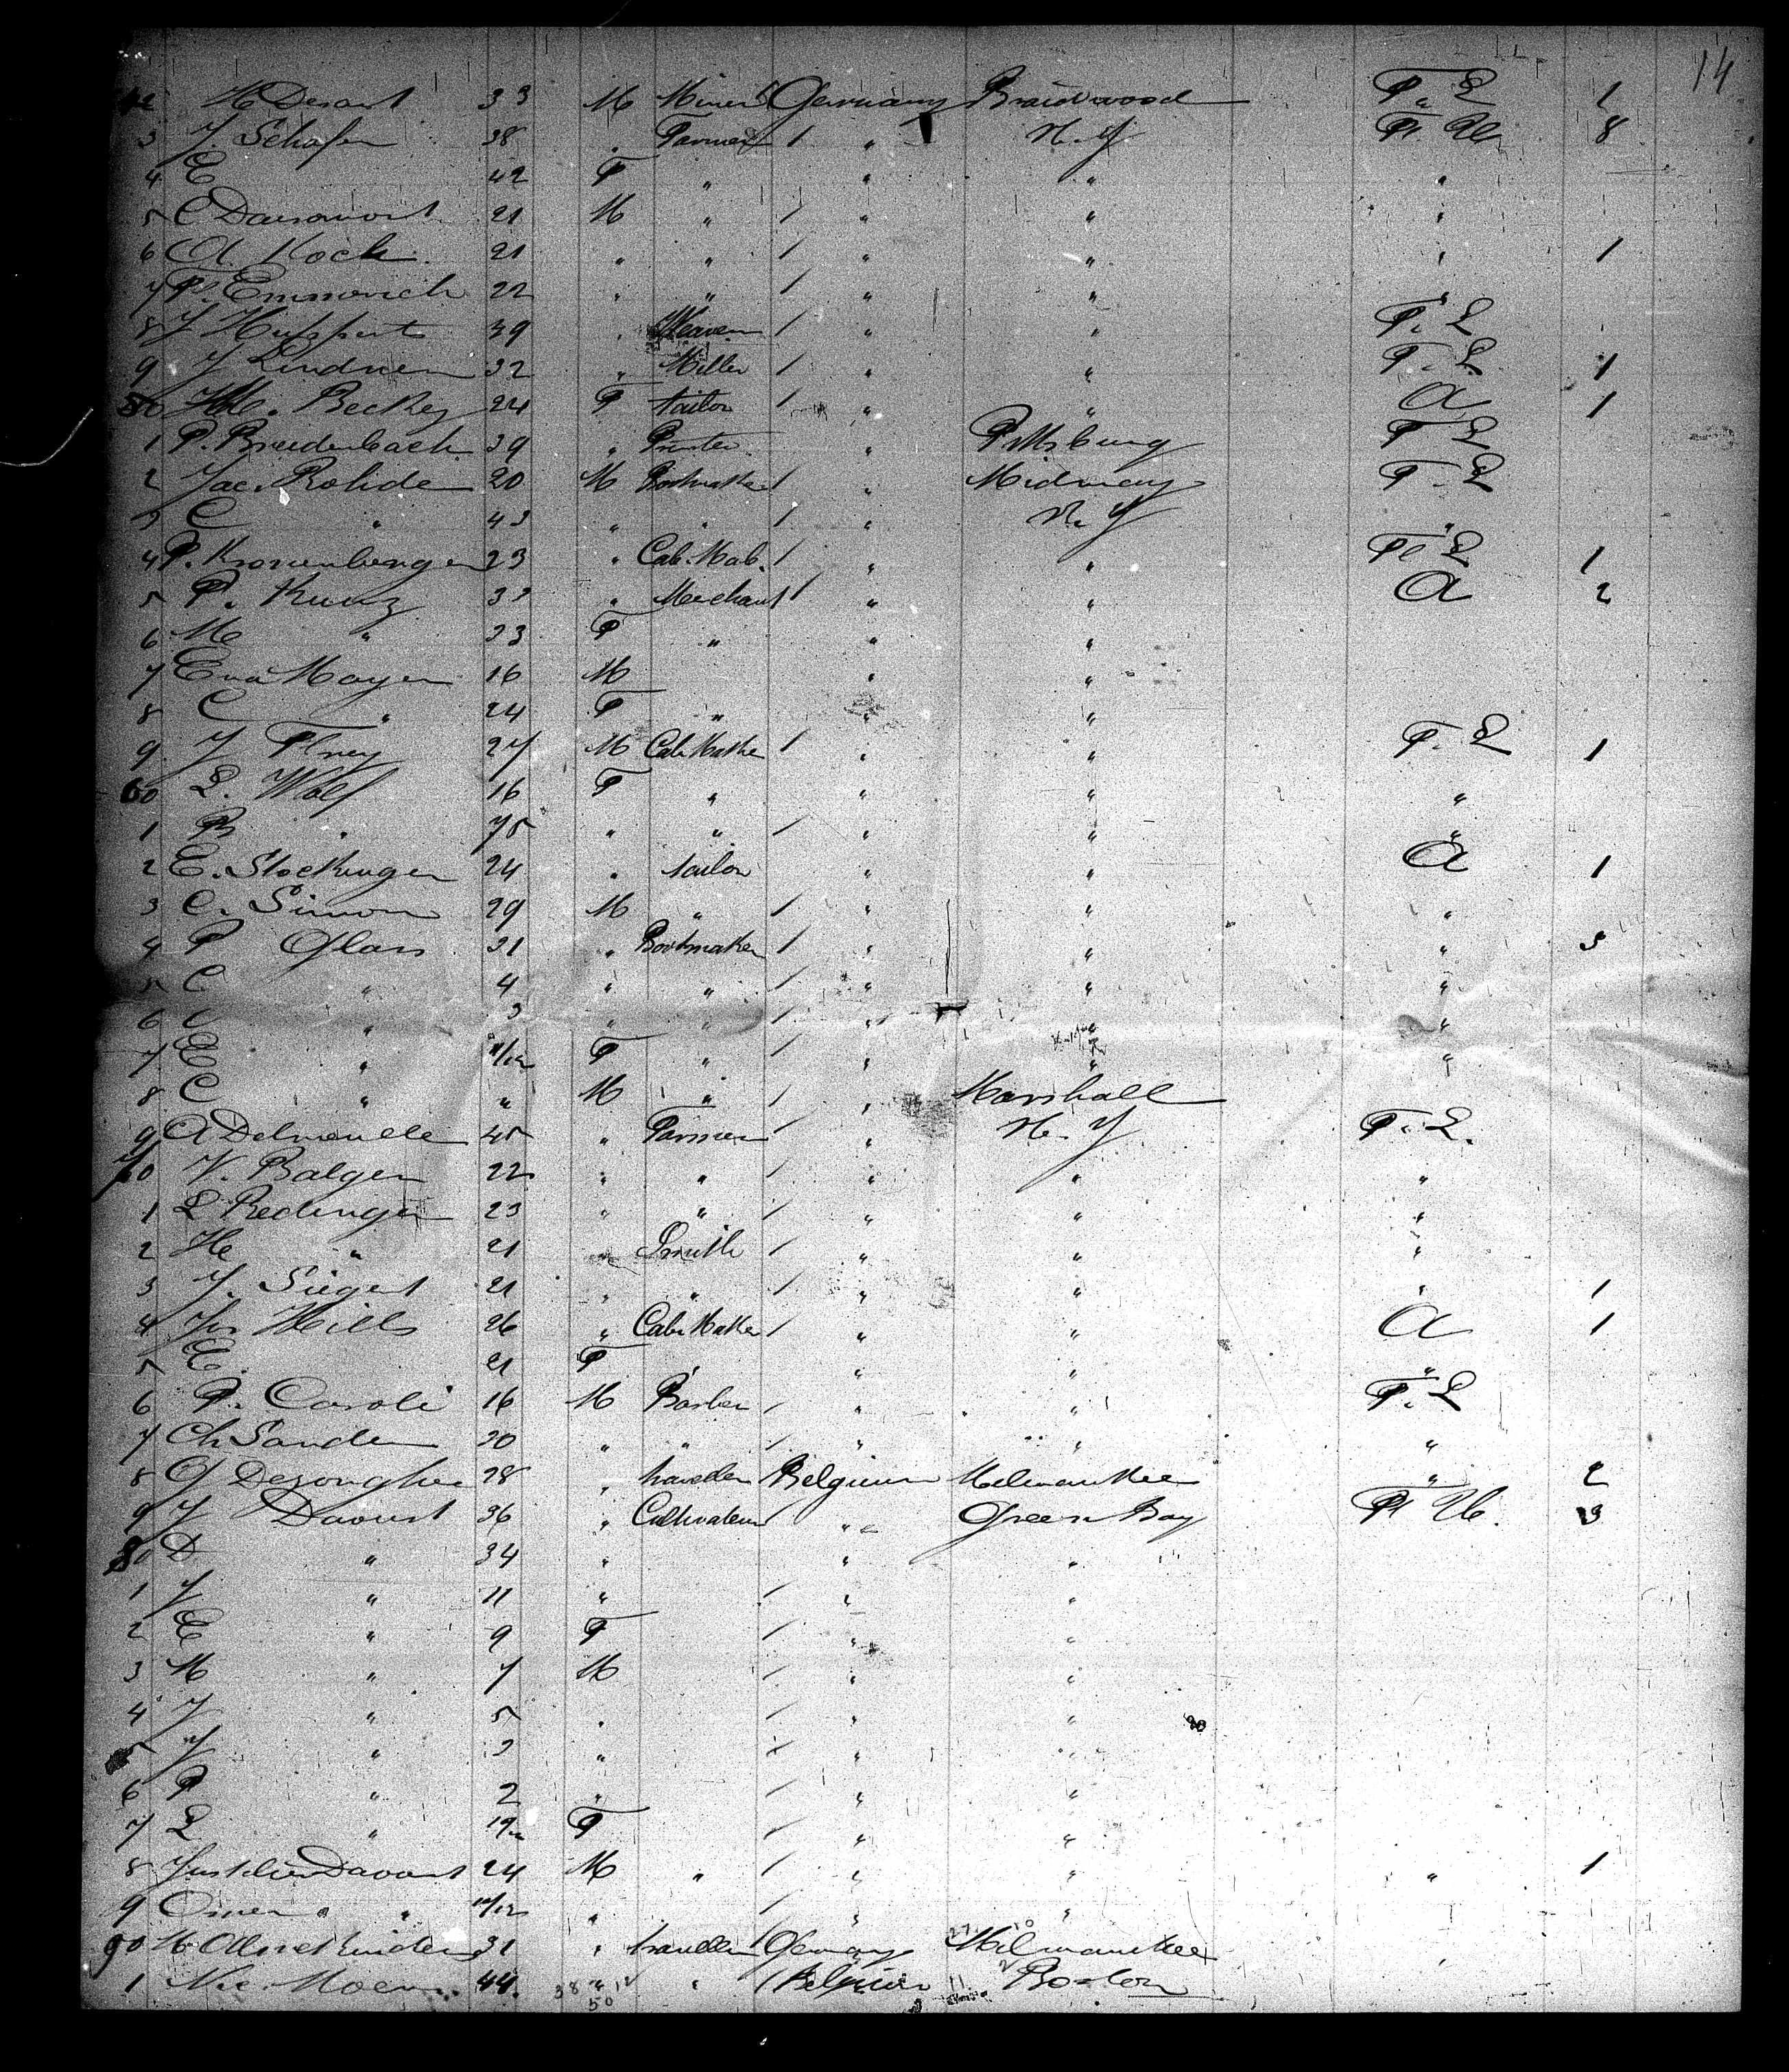 14
42 H Desart 33 M Miner Germany Braidwood F. L 1
3 J. Schafer 38 " Farmer / " N. Y. Pt. Ue 8
4 E 42 F " " " "
5 C 21 M " / " " "
6 A Koch 21 " " / " " " 1
7 P. Emmerich 22 " " / " " "
8 J Huppert 39 " Weaver / " " F. L
9 J Lindner 32 " Miller / " " F. L. 1
50 Becker 24 F tailor / " " A 1
1 P. Breidenbach 39 " " Pittsburg F L
2 Jac. Rohde 20 M Bootmaker / " Midway F. L
3 C " 43 " " / " N. Y "
4 P. Kronenberger 23 " Cab. Mak. / " " L 1
5 P. Kunz 33 " Merchant / " " A 2
6 M " 23 F " " "
7 Eva Mayer 16 M " "
8 C " 24 F " " "
9 J Frey 27 M Cab Make / " " F. L 1
60 L. Wolf 16 F " " " "
1 B " 75 " " / " " "
2 E. Stockinger 24 " tailor " " A 1
3 C. Simon 29 M " / " " "
4 P Glass 31 " Bootmaker / " " " 5
5 C " 4 " " / " " "
6 C " 3 " " / " " "
7 E " 11/12 F " / " " "
8 C " " M " / " Marshall
9 A Delmenlle 45 " Farmer / " N. Y F. L.
70 V. Balger 22 " " / " " "
1 L Redinger 23 " " / " " "
2 He " 21 " Smith / " " "
3 J. Siegert 21 " " / " " " 1
4 Jn Hills 26 " Cab. Maker / " " A 1
5 E. 21 F " " "
6 P. Caroli 16 M Barber / " " F. L
7 Ch Sander 30 " " / " " "
8 G Dezonghe 28 " traveller Belgium Milwaukee " 2
9 J Davust 36 " Cultivateur / " Green Bay Pt Ue. 3
80 D " 34 " " "
1 J " 11 " / " "
2 E " 9 F / " "
3 M " 7 M / " "
4 J " 5 " / " "
5 J " 3 " / " "
6 P " 2 " / " "
7 L " F / " "
8 Davust 24 M " / " " " 1
9 Omer " " " / " "
90 31 " traveller Germany Milwaukee
1 Nic Moen 44 " " / Belgium Boston